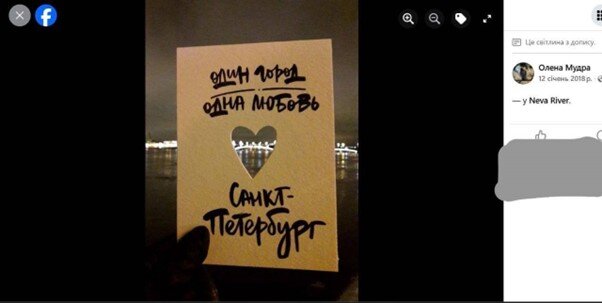 один город
одна любовь
Санкт-
Петербург
Це світлина з допису.
Олена Мудра
12 січень 2018 р.
— у Neva River.